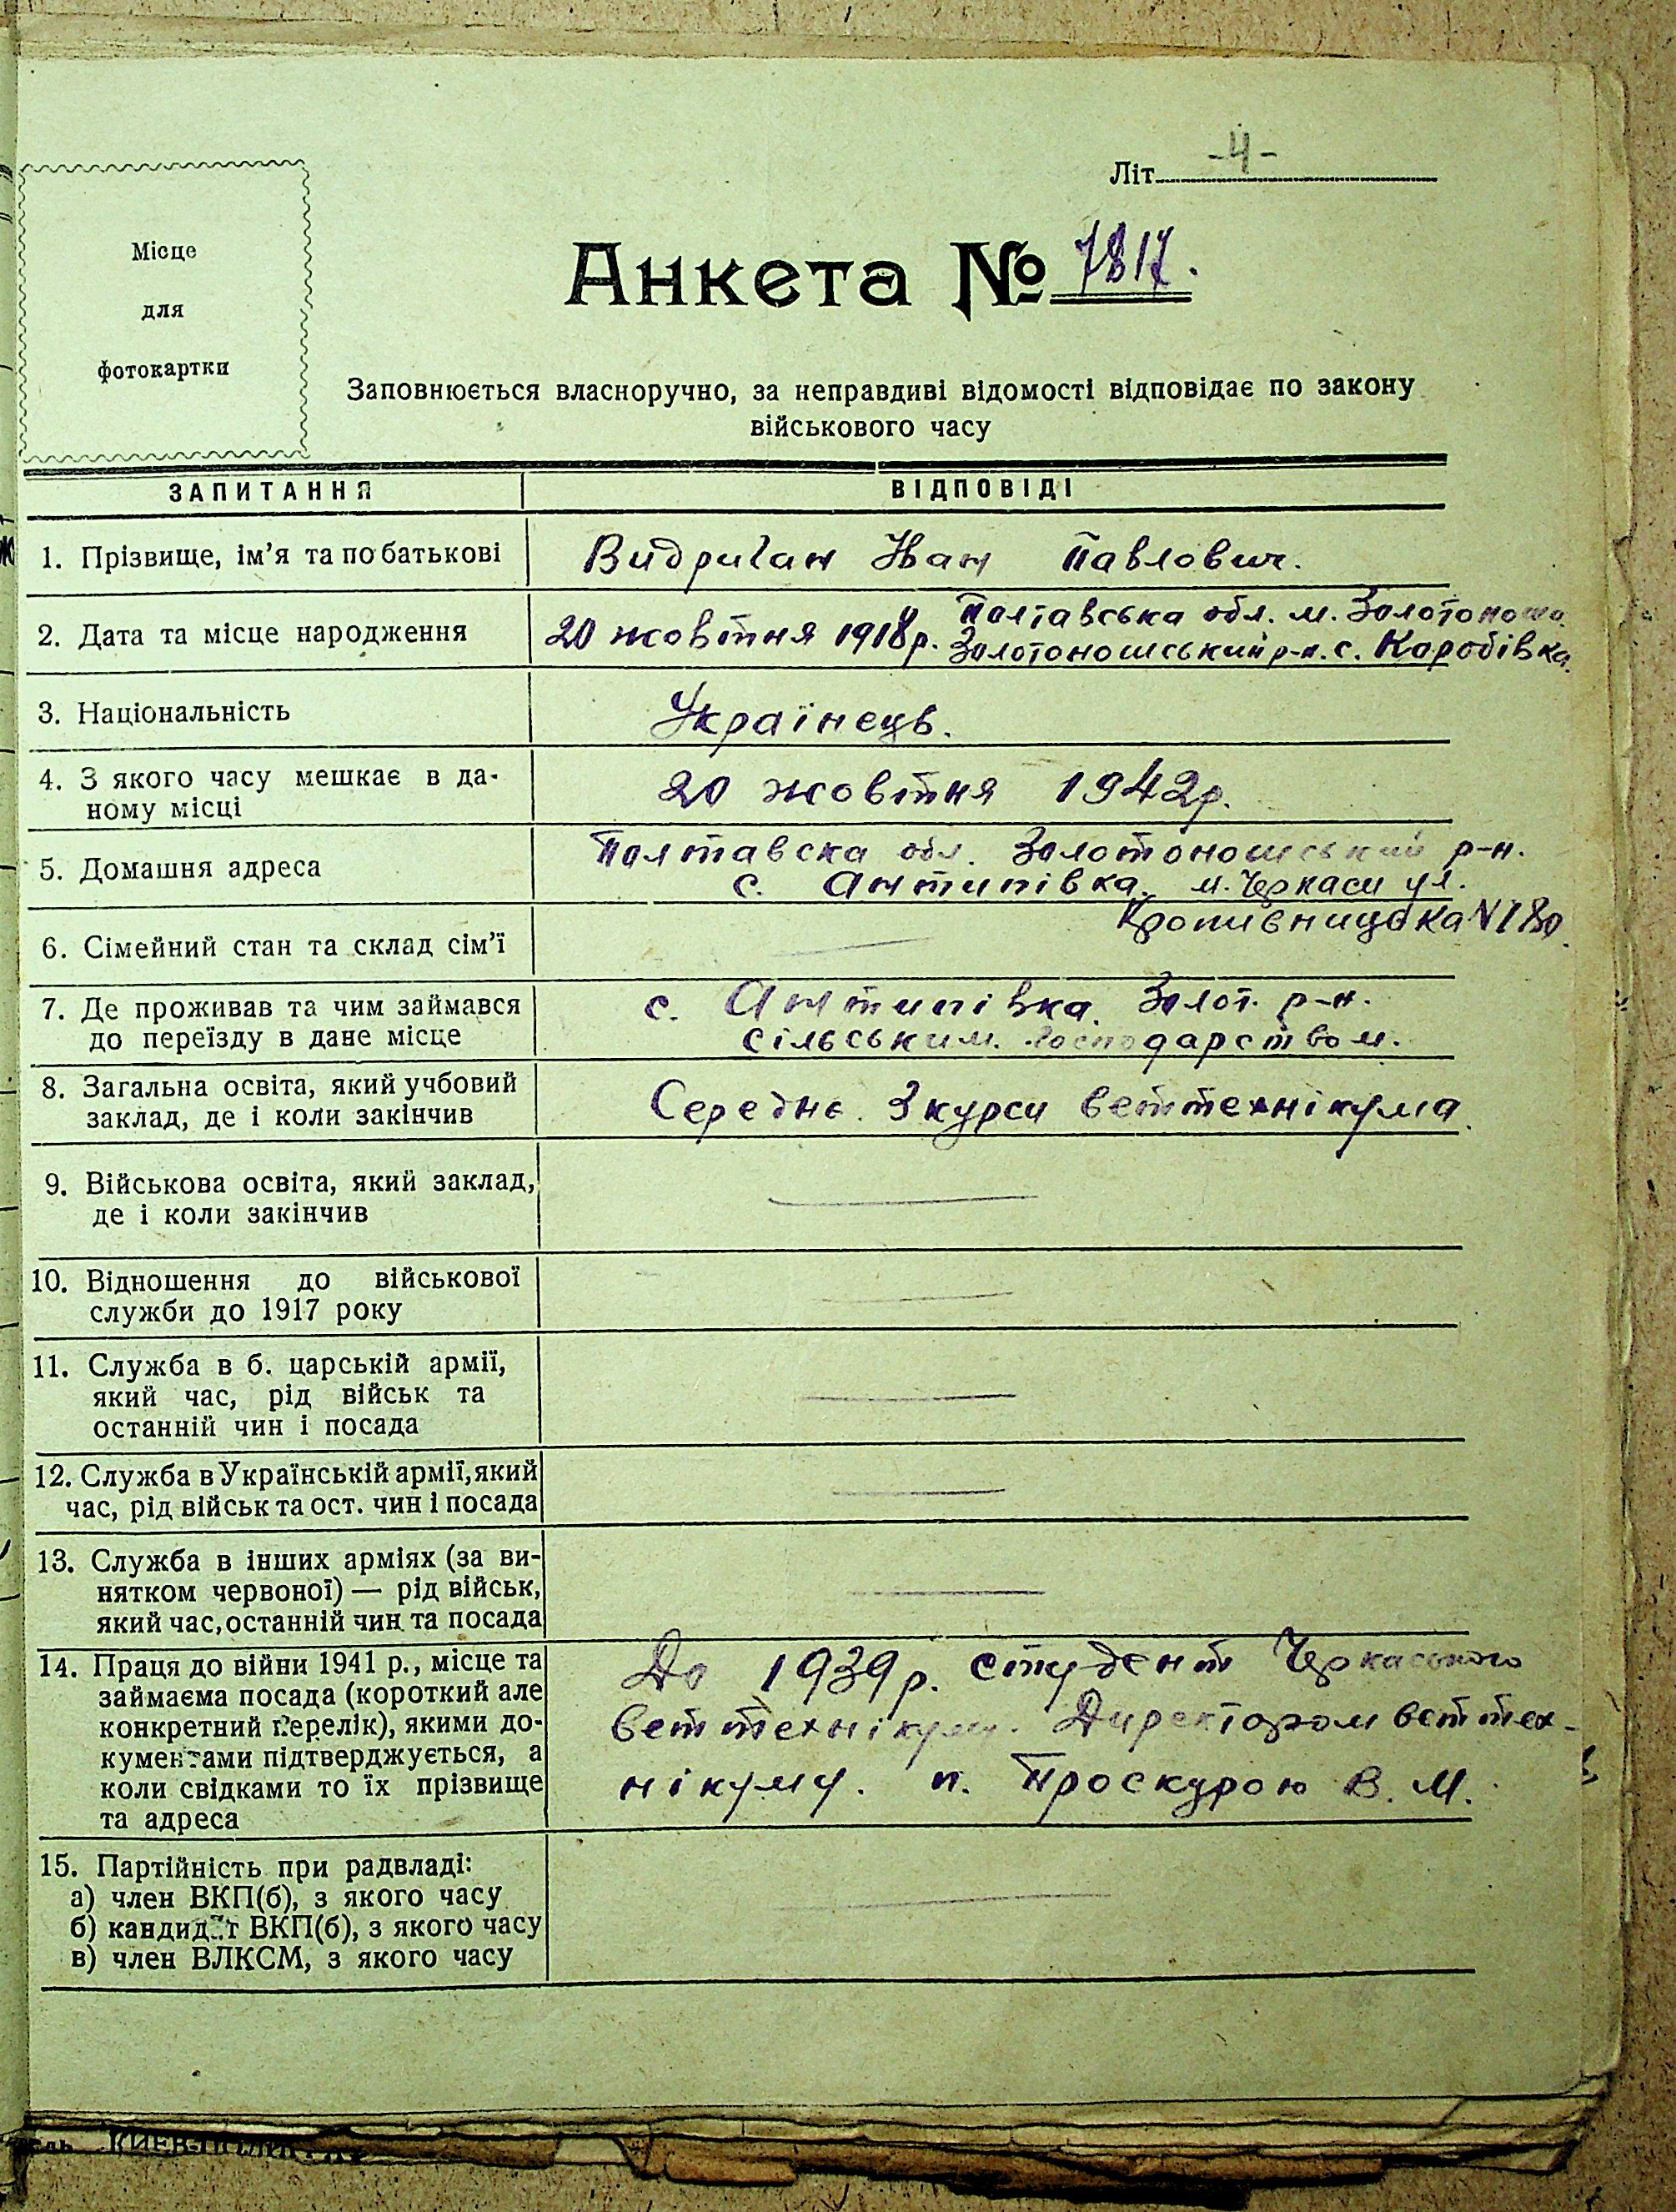 Літ. -4-
Місце
для
фотокартки
Анкета № 7817.
Заповнюється власноручно, за неправдиві відомості відповідає по закону
військового часу
ЗАПИТАННЯ ВІДПОВІДІ
1. Прізвище, ім'я та по батькові Видриган Іван Павлович.
2. Дата та місце народження 20 жовтня 1918р. Полтавська обл. м. Золотоноша
Золотоношський р-н. с. Коробівка.
3. Національність Українець.
4. З якого часу мешкає в да- 20 жовтня 1942р.
ному місці
5. Домашня адреса Полтавска обл. Золотоношський р-н.
с. Антипівка. м. Черкаси ул.
Кропивницька N 180.
6. Сімейний стан та склад сім'ї —
7. Де проживав та чим займався с. Антипівка. Золот. р-н.
до переїзду в дане місце сільським. господарством.
8. Загальна освіта, який учбовий Середнє. 3 курси веттехнікума.
заклад, де і коли закінчив
9. Військова освіта, який заклад, —
де і коли закінчив
10. Відношення до військової —
служби до 1917 року
11. Служба в б. царській армії, —
який час, рід військ та
останній чин і посада
12. Служба в Українській армії, який —
час, рід військ та ост. чин і посада
13. Служба в інших арміях (за ви- —
нятком червоної) — рід військ,
який час, останній чин та посада
14. Праця до війни 1941 р., місце та До 1939р. студент Черкаського
займаєма посада (короткий але веттехнікуму. Директором веттех-
конкретний перелік), якими до- нікуму. п. Проскурою В. М.
кументами підтверджується, а
коли свідками то їх прізвище
та адреса
15. Партійність при радвладі: —
а) член ВКП(б), з якого часу
б) кандидат ВКП(б), з якого часу
в) член ВЛКСМ, з якого часу